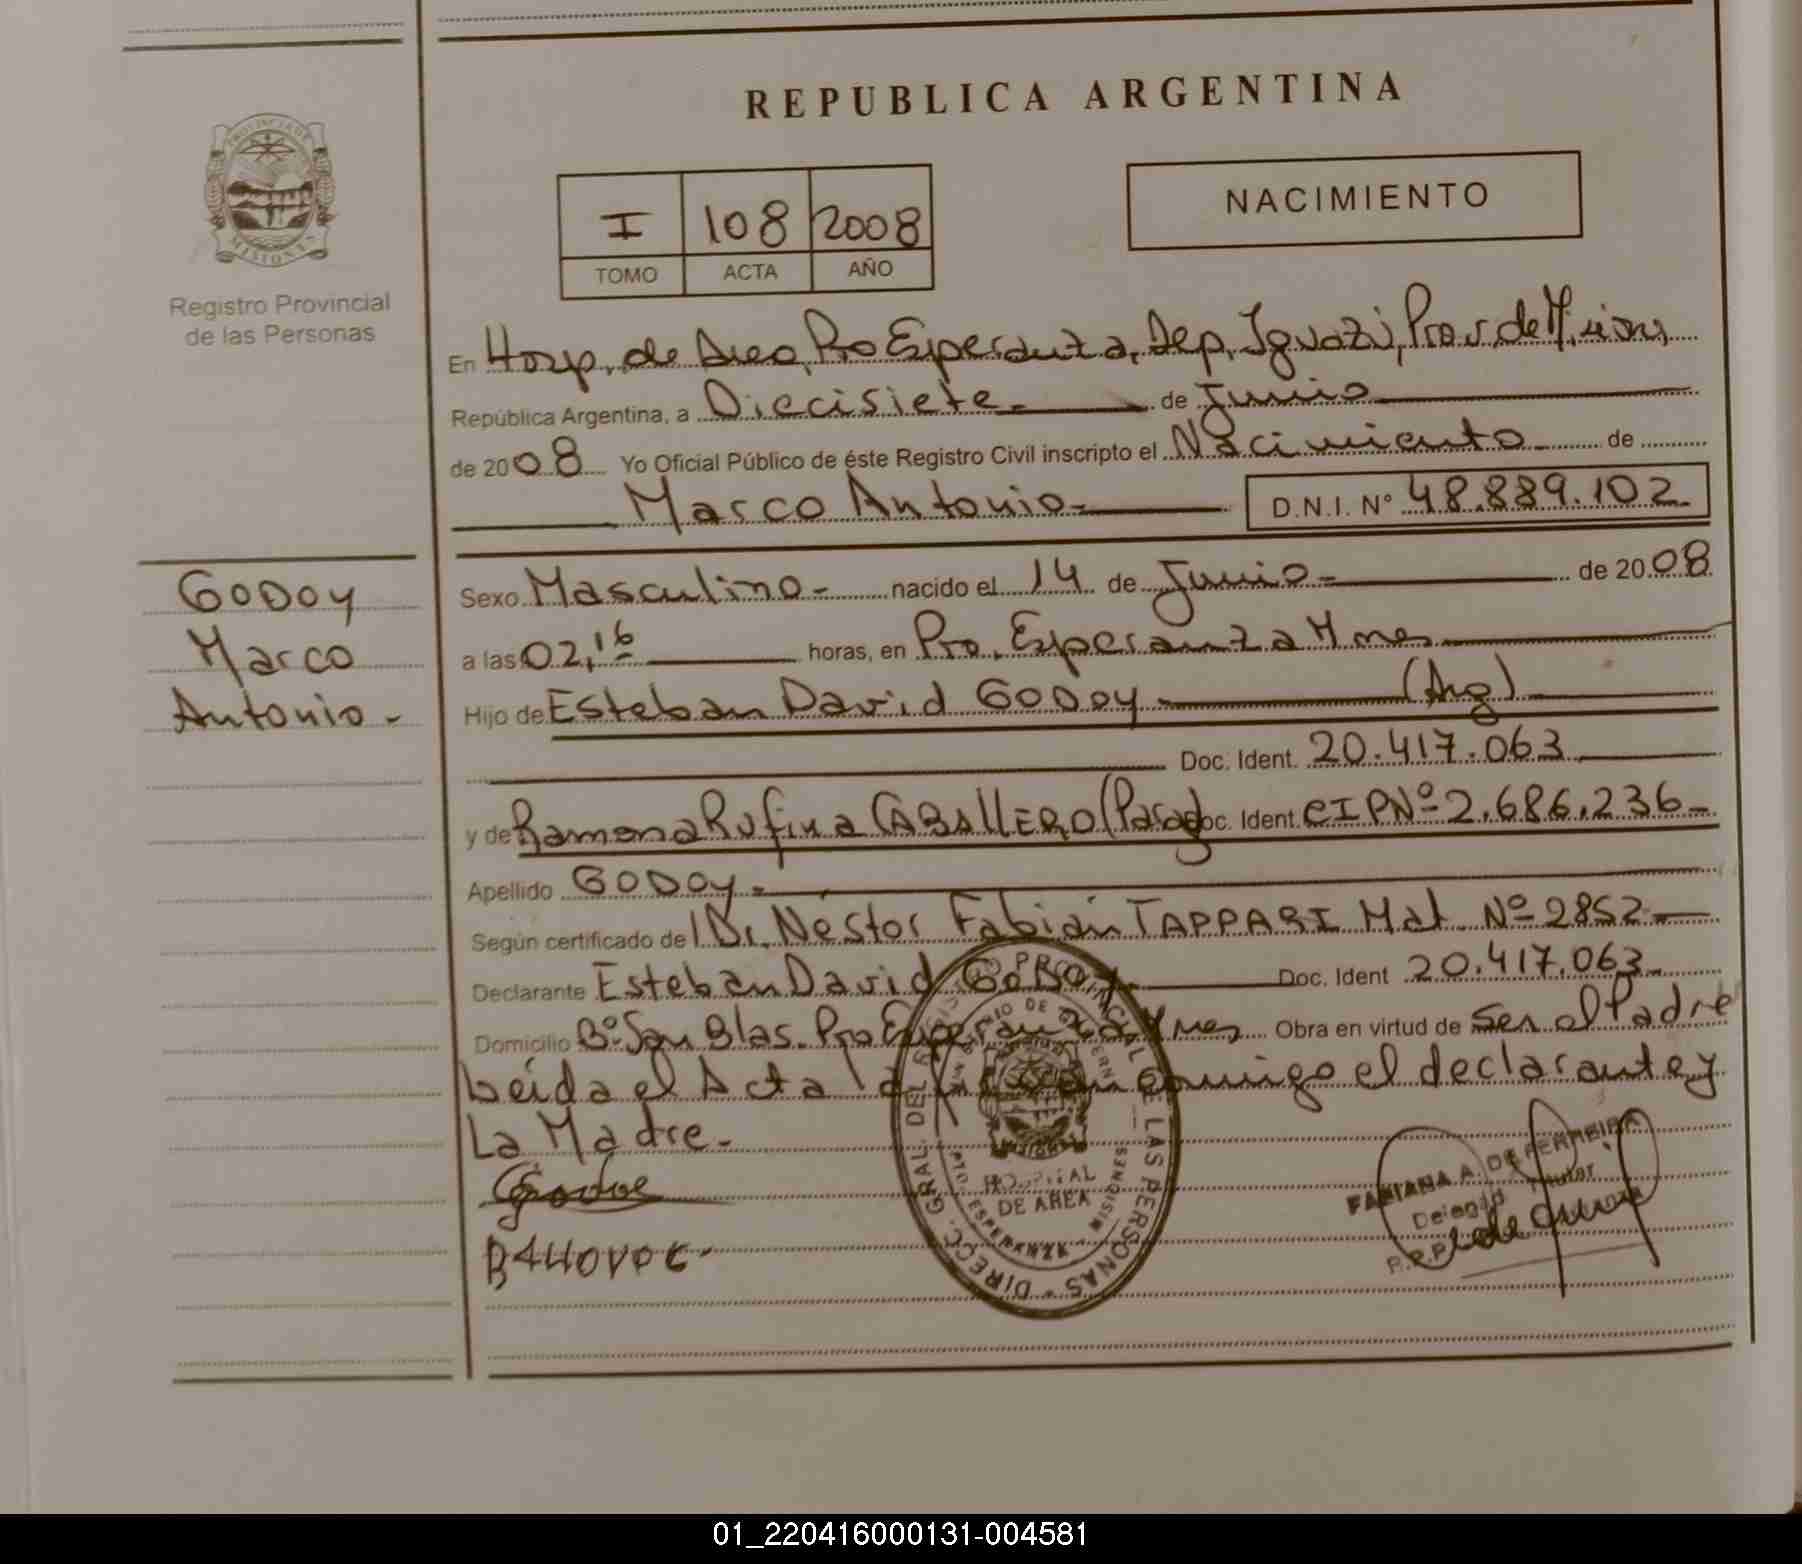 REPUBLICA ARGENTINA
PROVINCIA DE
MISIONES
Registro Provincial
de las Personas
I 108 2008
TOMO ACTA AÑO
NACIMIENTO
En Hosp. de Area, Pto Esperanza, Dep. Iguazú, Prov. de Misiones
República Argentina, a Diecisiete de Junio
de 2008 Yo Oficial Público de éste Registro Civil inscripto el Nacimiento de
Marco Antonio D.N.I. Nº 48.889.102
GODOy
Marco
Antonio -
Sexo Masculino - nacido el 14 de Junio - de 2008
a las 02,16 horas, en Pto. Esperanza Mnes
Hijo de Esteban David GODOy (Arg)
Doc. Ident. 20.417.063
y de Ramona Rufina CABAllERO (Parag Doc. Ident. CIPNº 2.686.236
Apellido GODOy -
Según certificado de Dr. Néstor Fabián TAPPARI Mat. Nº 2852
Declarante Esteban David GODOy Doc. Ident 20.417.063
Domicilio Bº San Blas. Pto Esperanza Mnes Obra en virtud de Ser el Padre
Leída el Acta la conmigo el declarante y
La Madre -
DIRECC. GRAL. DEL REGISTRO PROVINCIAL DE LAS PERSONAS
MINISTERIO DE GOBIERNO
HOSPITAL
DE AREA
PTO ESPERANZA - MISIONES
FABIANA A. DE FERREIRA
Delegada Titular
R.P.P.